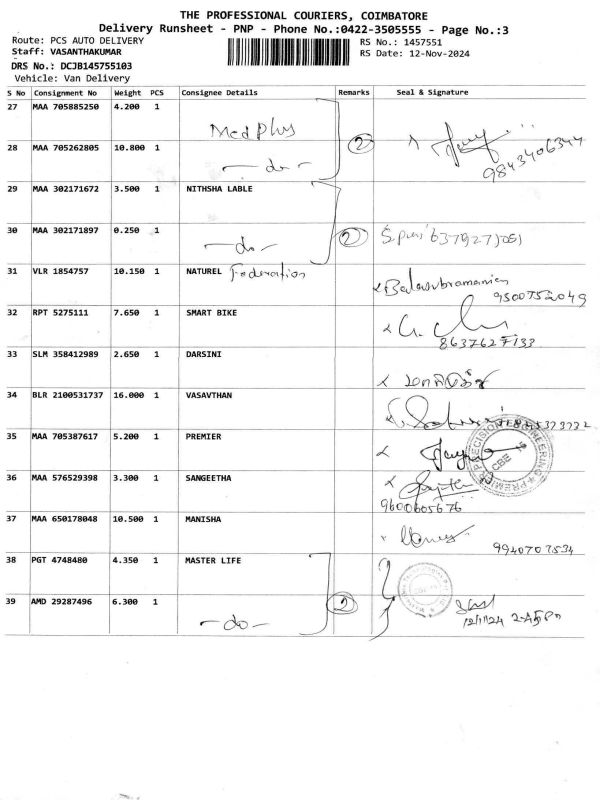 THE PROFESSIONAL COURIERS, COIMBATORE
Delivery Runsheet - PNP - Phone No.:0422-3505555 - Page No.:3
Route: PCS AUTO DELIVERY
RS No.: 1457551
Staff: VASANTHAKUMAR
RS Date: 12-Nov-2024
DRS No.: DCJB145755103
Vehicle: Van Delivery
S No Consignment No Weight PCS Consignee Details Remarks Seal & Signature
27 MAA 705885250 4.200 1
MedPlus
2
9843406344
28 MAA 705262805 10.800 1
-do-
29 MAA 302171672 3.500 1 NITHSHA LABLE
30 MAA 302171897 0.250 1
-do-
2
31 VLR 1854757 10.150 1 NATUREL Federation
Balasubramanian
9500752049
32 RPT 5275111 7.650 1 SMART BIKE
8637627133
33 SLM 358412989 2.650 1 DARSINI
34 BLR 2100531737 16.000 1 VASAVTHAN
35 MAA 705387617 5.200 1 PREMIER
PREMIER PRECISION ENGINEERING
CBE
36 MAA 576529398 3.300 1 SANGEETHA
9600605676
37 MAA 650178048 10.500 1 MANISHA
9940707534
38 PGT 4748480 4.350 1 MASTER LIFE
39 AMD 29287496 6.300 1
-do-
2
12/11/24